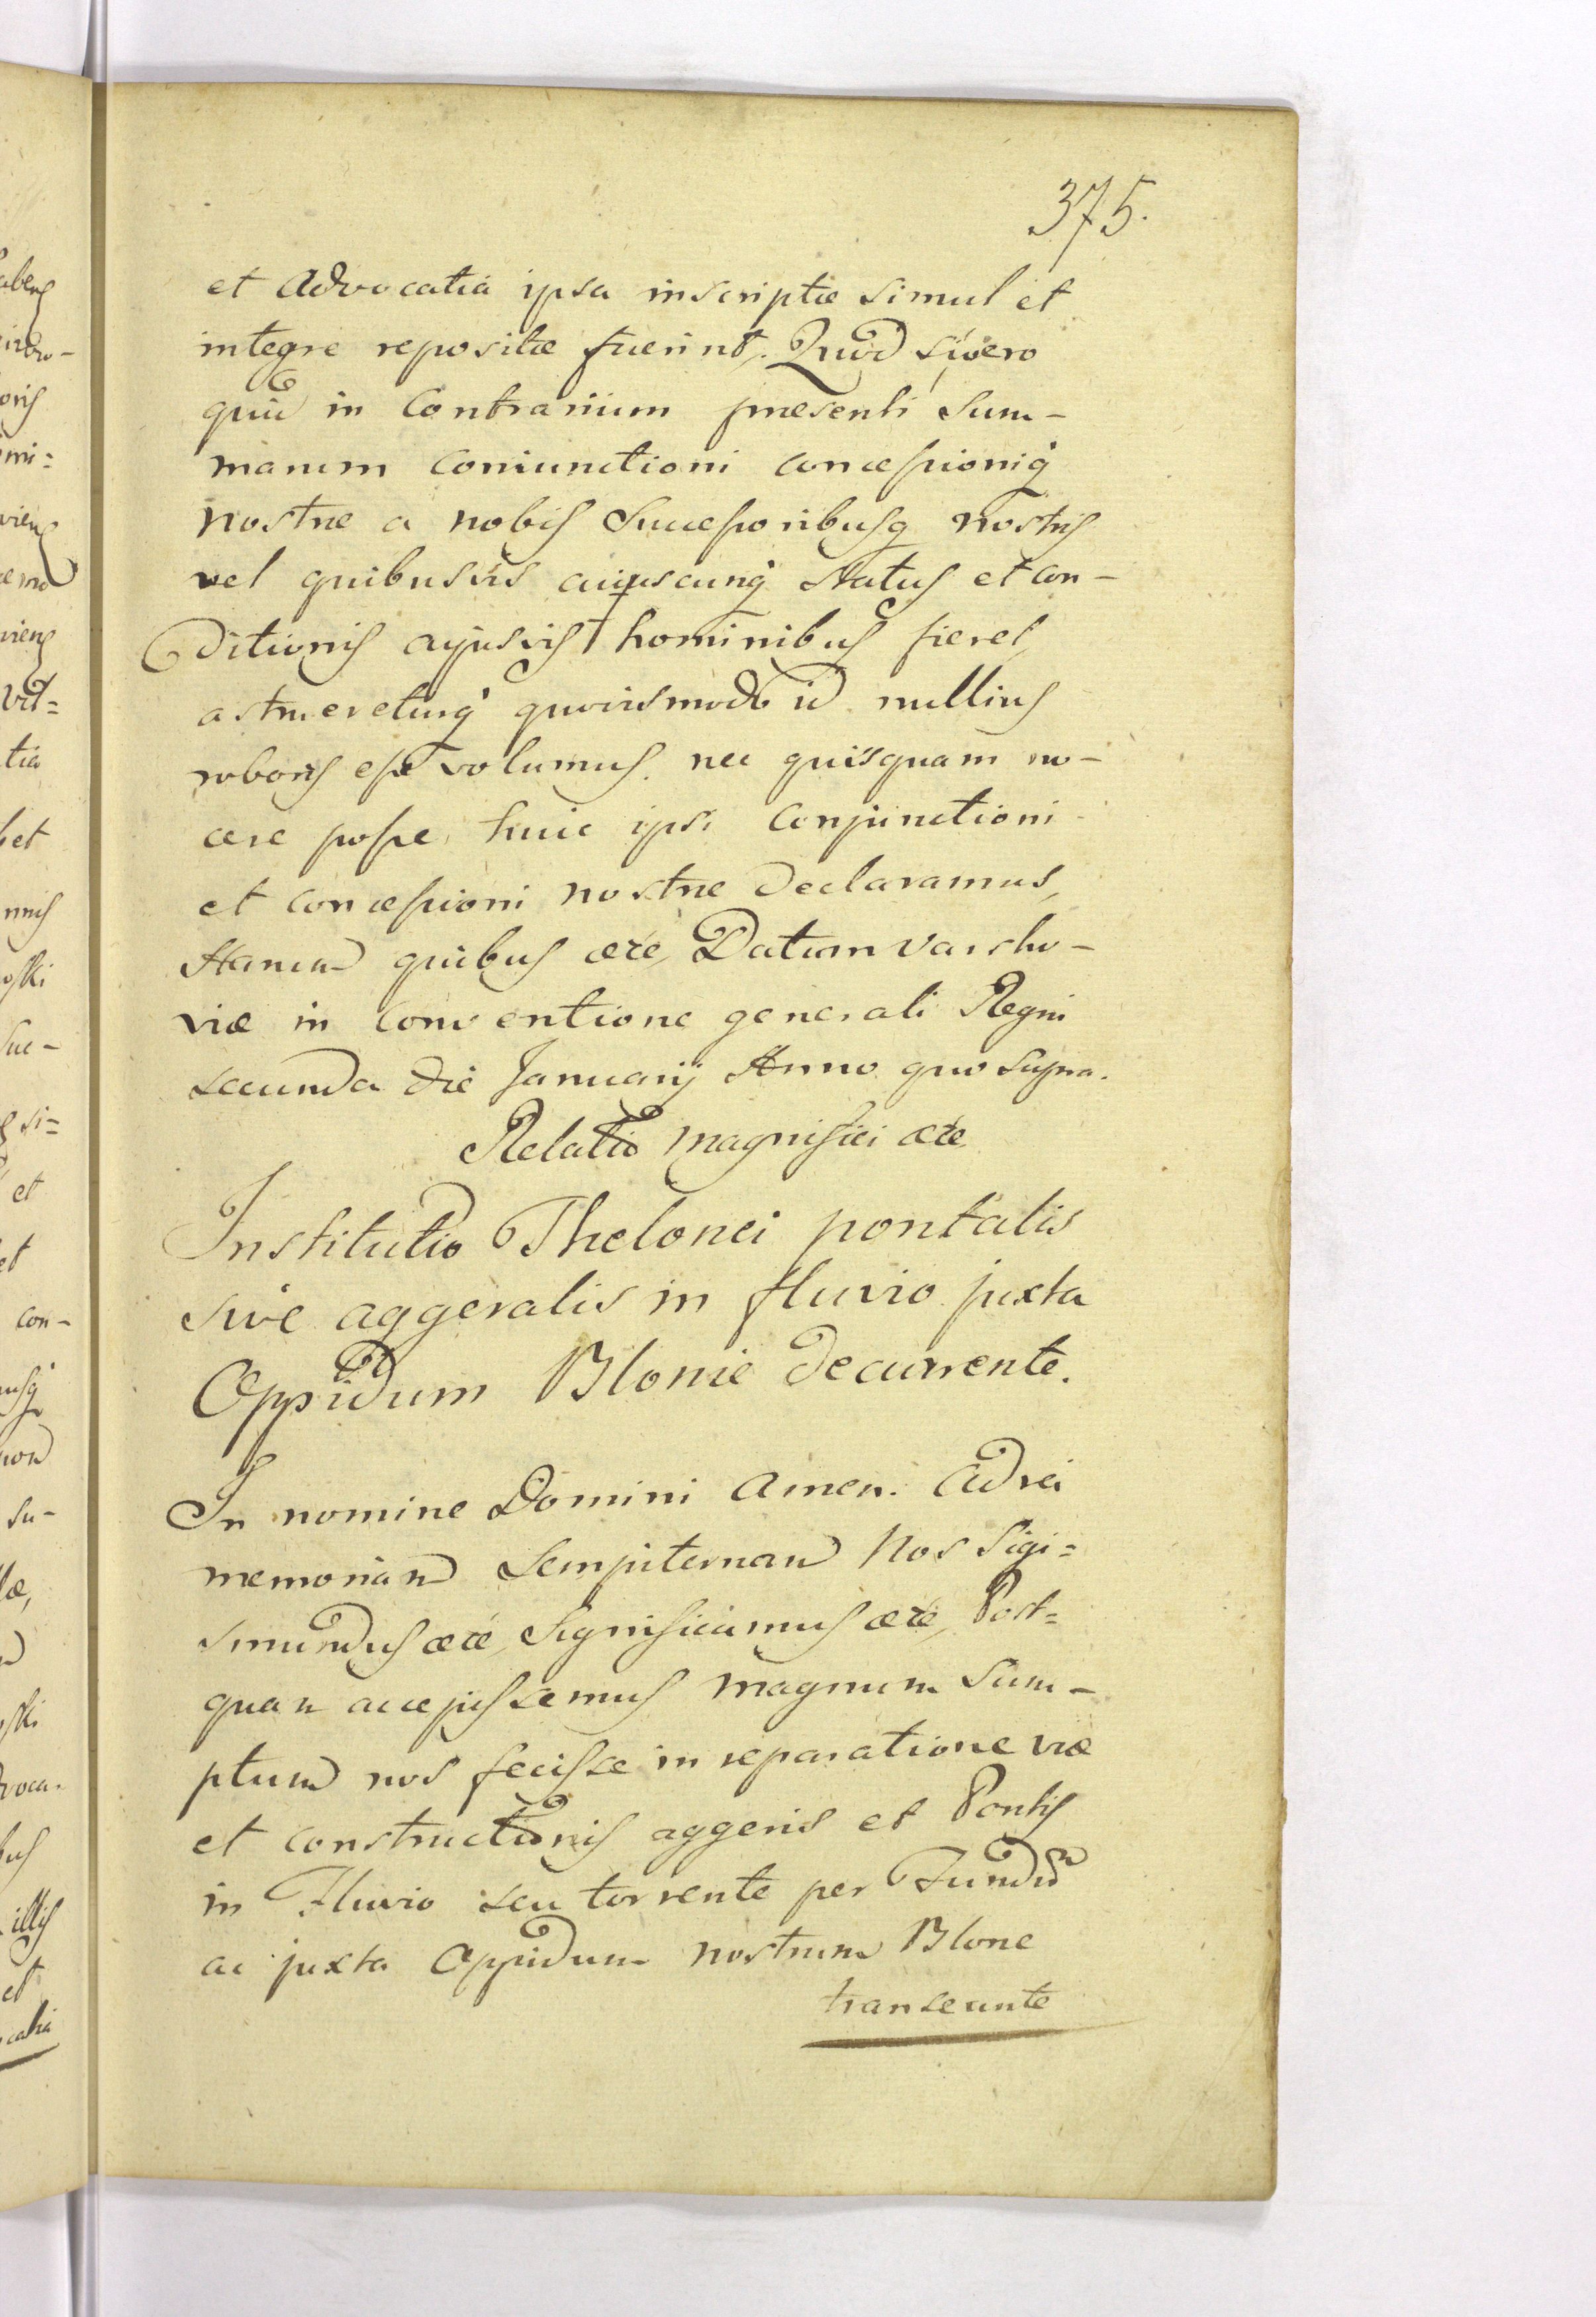 375.
et Advocatia ipsa inscriptæ simul et
integre repositæ fuerint. Quod si vero
quid in Contrarium præsenti Sum-
marum coniunctioni concessioniq
nostræ a nobis Successoribusq nostris
vel quibusvis cuiuscunq Status et con-
ditionis cujusvis hominibus fieret,
astruereturq quovismodo id nullius
roboris esse volumus. nec quisquam no-
cere posse huic ipsi Conjunctioni
et concessioni nostræ declaramus,
Harum quibus etc, Datum Varsho-
viæ in conventione generali Regni
secunda die Januarij Anno quo supra.
Relatio magnifici etc
Institutio Thelonei pontalis
sive aggeralis in fluvio juxta
Oppidum Blonie decurrente.
In nomine Domini Amen. Ad rei
memoriam Sempiternam Nos Sigi=
smundus etc, Significamus etc, Post=
quam accepissemus magnum Sum-
ptum nos fecisse in reparatione viæ
et constructionis aggeris et Pontis
in Fluvio seu torrente per Fundum
ac juxta Oppidum nostrum Blone
transeunte